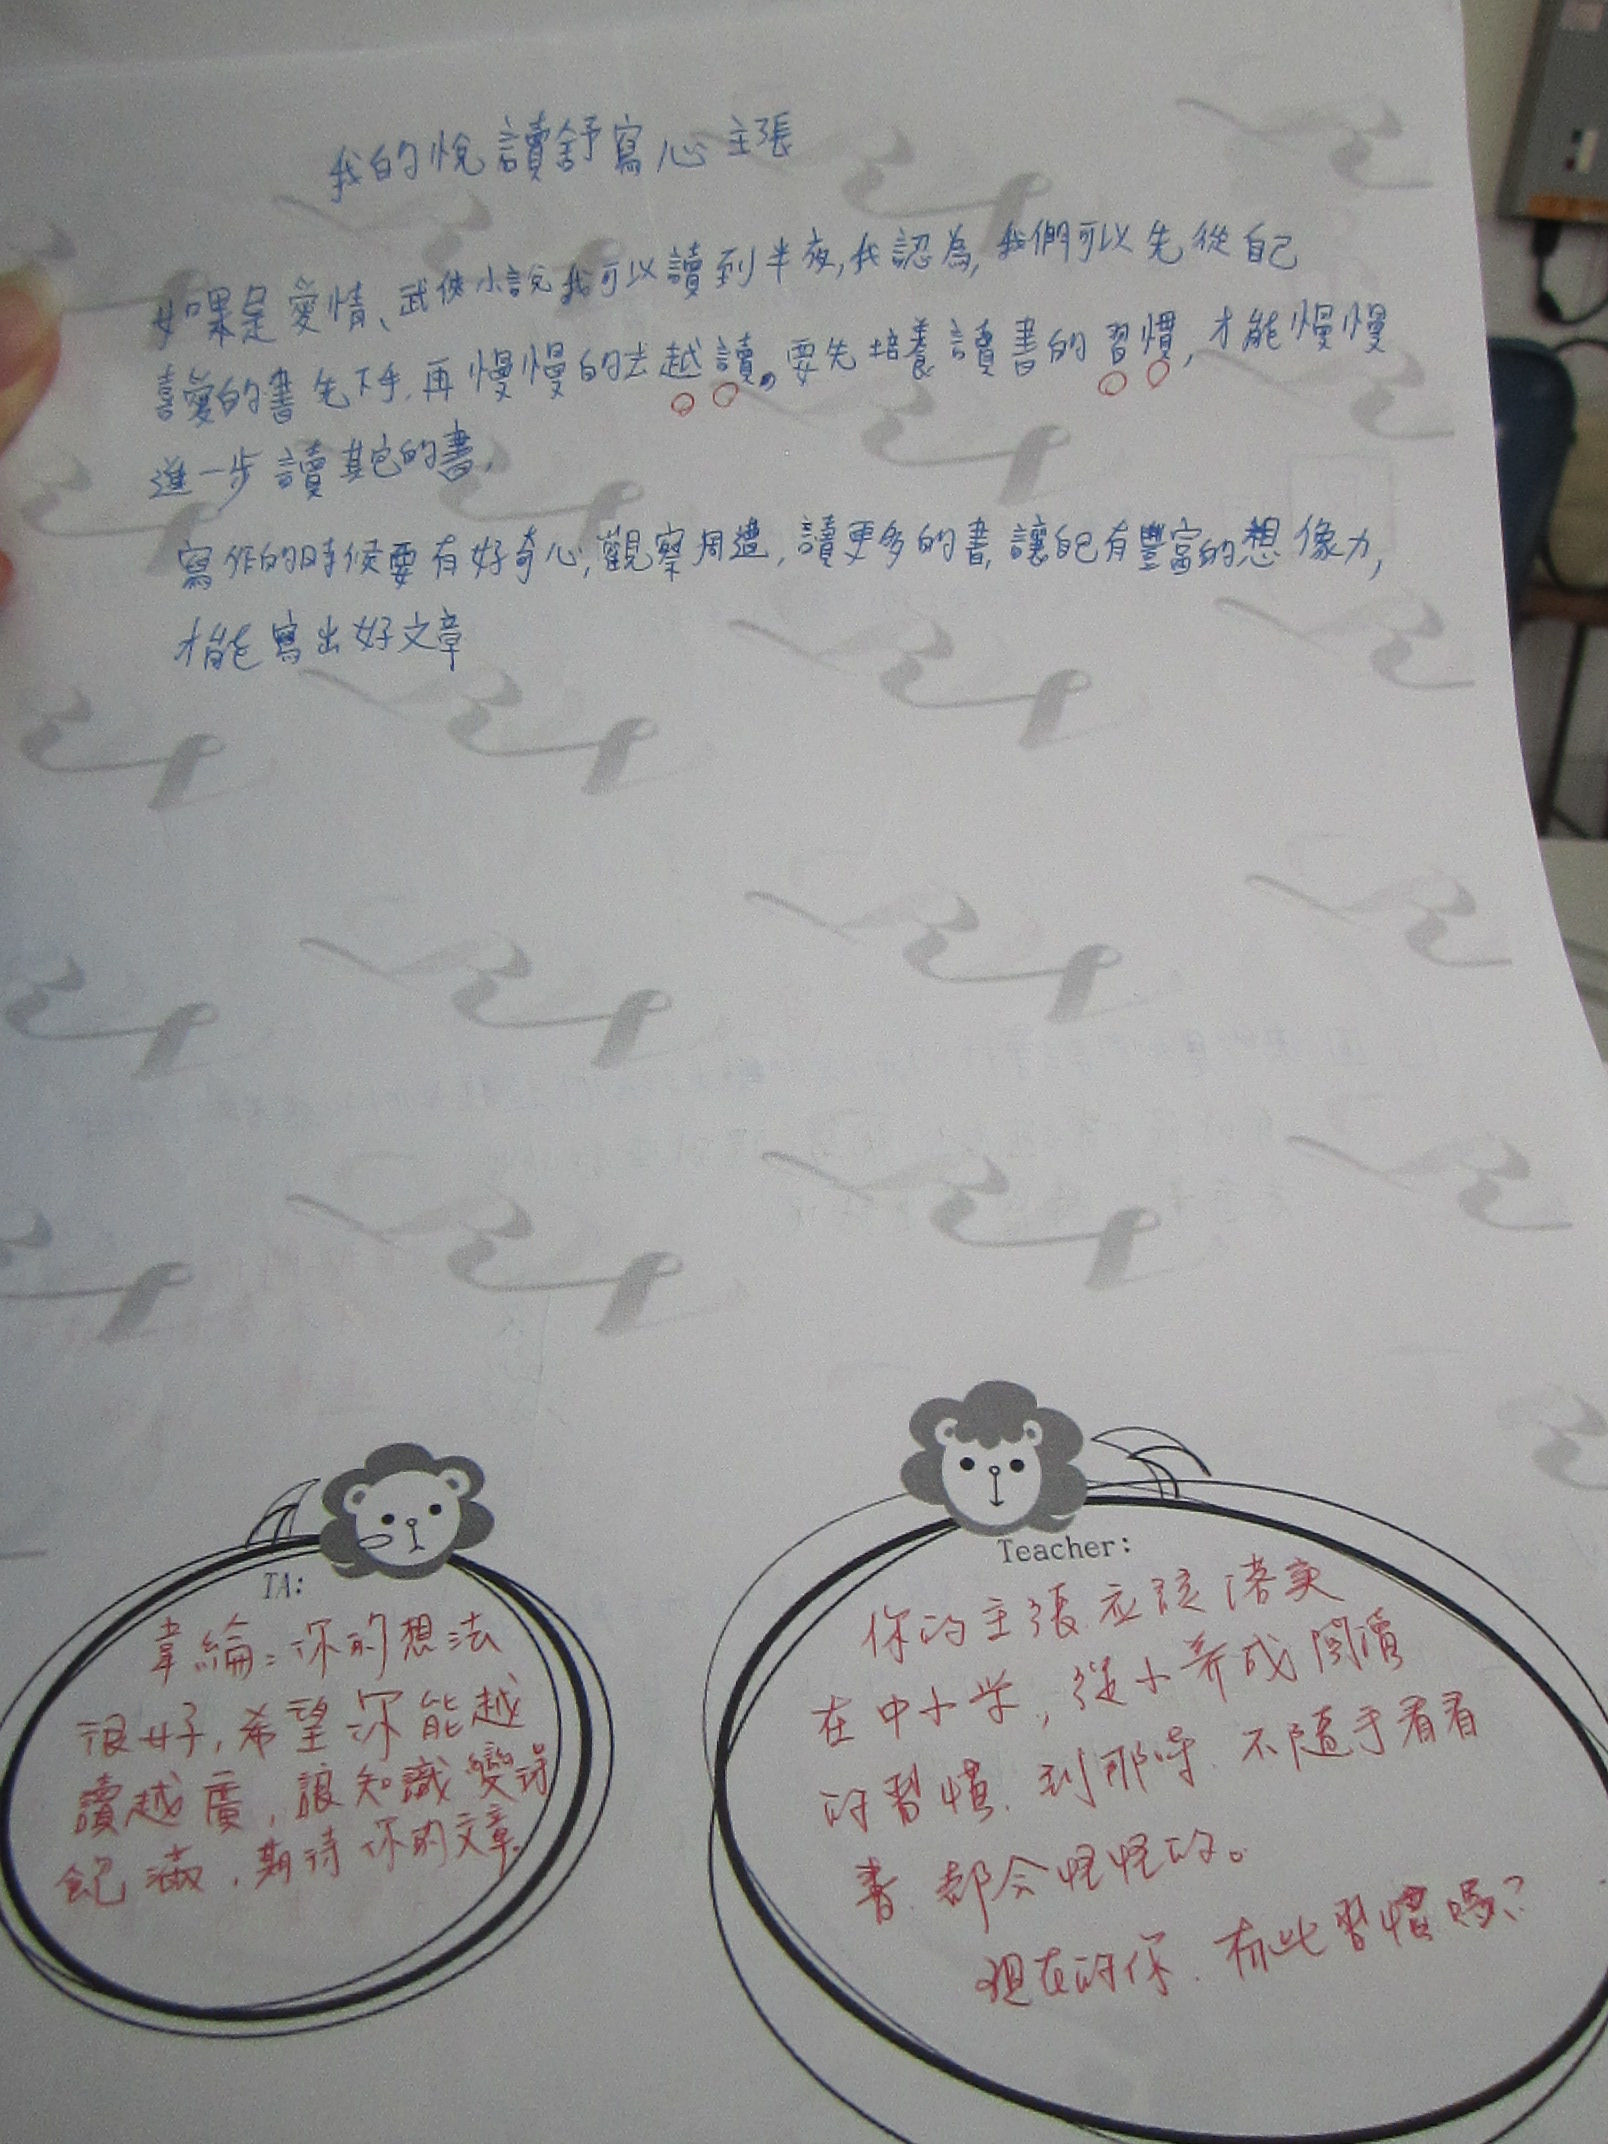 我的悅讀舒寫心主張
如果是愛情、武俠小說我可以讀到半夜,我認為,我們可以先從自己
喜愛的書先下手,再慢慢的去越讀。要先培養讀書的習慣,才能慢慢
進一步讀其它的書.
寫作的時候要有好奇心,觀察周遭,讀更多的書,讓自己有豐富的想像力,
才能寫出好文章
TA:
韋綸:你的想法
很好,希望你能越
讀越廣,讓知識變得
飽滿,期待你的文章。
Teacher:
你的主張应该落实
在中小学,從小养成閱讀
的習慣.到那時.不隨手看看
書.都会怪怪的。
現在的你.有此習慣嗎?